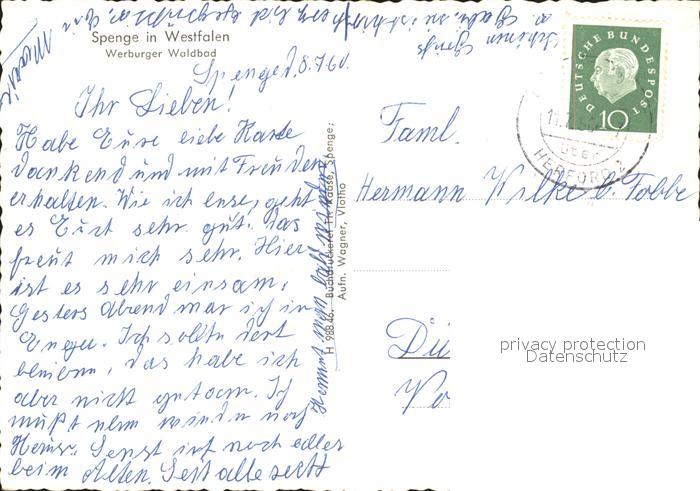 Spenge in Westfalen
Werburger Waldbad
Spenge d. 8.7.60.
Ihr Lieben!
Habe Eure liebe Karte
dankend und mit Freuden
erhalten. Wie ich ense, geht
es Euch sehr gut. Das
freut mich sehr. Hier
ist es sehr einsam.
Gestern Abend war ich in
Enger. Ich sollte dort
bleiben, das habe ich
aber nicht getan. Ich
mußte wieder nach
Hause. Sonst ist noch alles
beim Alten. Seit alle recht
H 98846. Buchdruckerei Fr. Raase, Spenge;
Aufn. Wagner, Vlotho
DEUTSCHE BUNDESPOST
10
über
HERFORD 2
Faml.
Hermann Wilke b. Tobbe
Dü
privacy protection
Datenschutz